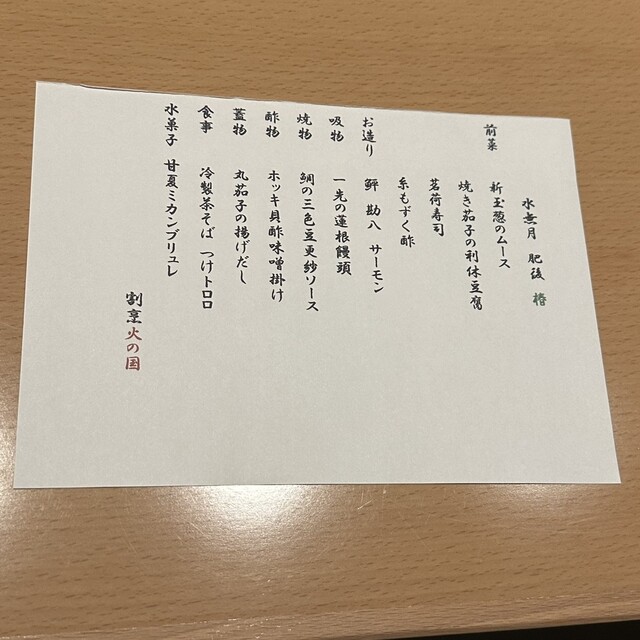 水無月 肥後 椿
前菜
新玉葱のムース
焼き茄子の利休豆腐
茗荷寿司
糸もずく酢
お造り 鮃 勘八 サーモン
吸物 一先の蓮根饅頭
焼物 鯛の三色豆更紗ソース
酢物 ホッキ貝酢味噌掛け
蓋物 丸茄子の揚げだし
食事 冷製茶そば つけトロロ
水菓子 甘夏ミカンブリュレ
割烹火の国